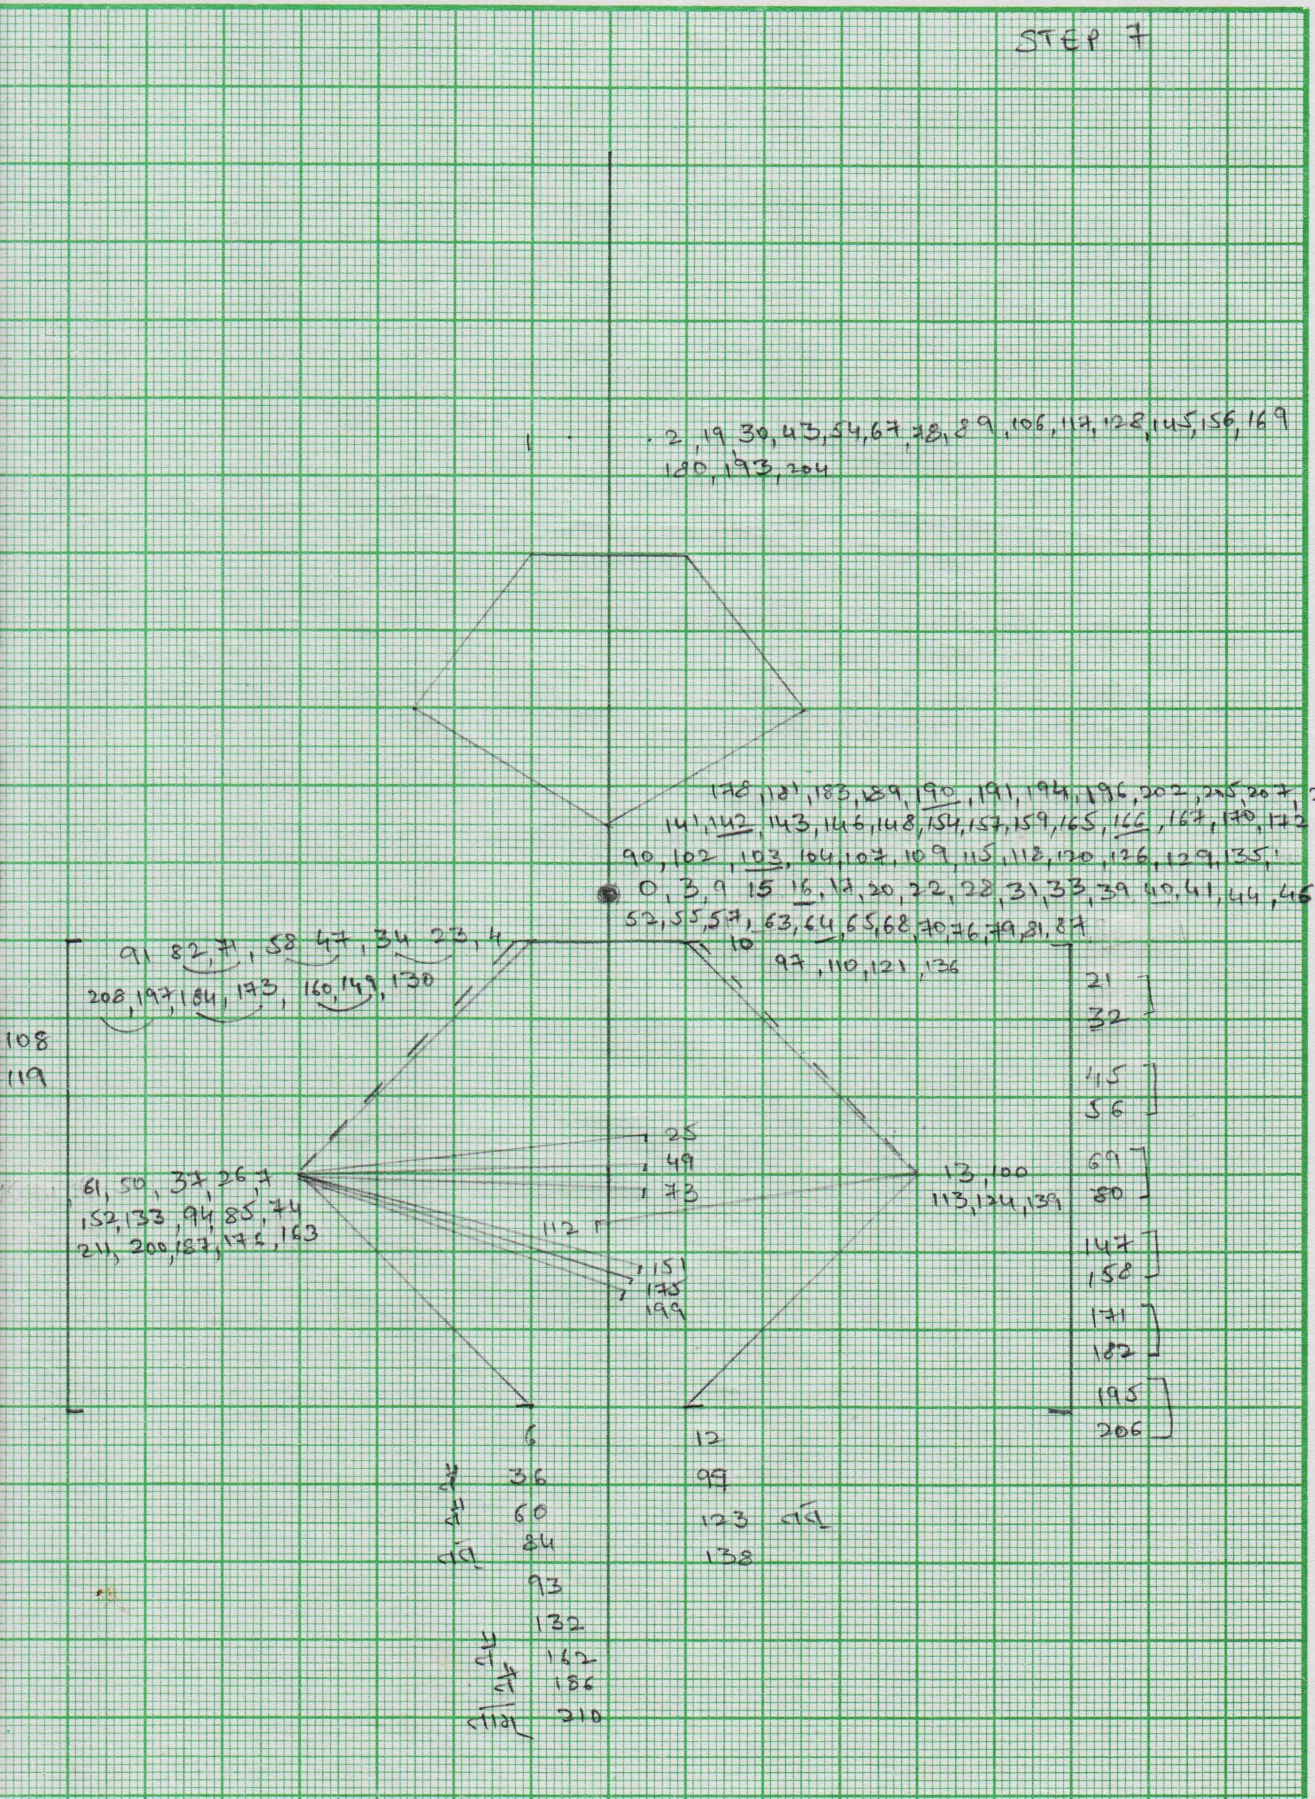 STEP 7
1 . . 2, 19, 30, 43, 54, 67, 78, 89, 106, 117, 128, 145, 156, 169
180, 193, 204
178, 181, 183, 189, 190, 191, 194, 196, 202, 205, 207,
141, 142, 143, 146, 148, 154, 157, 159, 165, 166, 167, 170, 172
90, 102, 103, 104, 107, 109, 115, 118, 120, 126, 129, 135,
0, 3, 9 15 16, 17, 20, 22, 28, 31, 33, 39 40, 41, 44, 46
52, 55, 57, 63, 64, 65, 68, 70, 76, 79, 81, 87
91 82, 71, 58 47, 34 23, 4
10
97, 110, 121, 136
208, 197, 184, 173, 160, 149, 130
21
32
108
119
45
56
25
49
73
61, 50, 37, 26, 7
152, 133, 94, 85, 74
211, 200, 187, 176, 163
13, 100
113, 124, 139
69
80
112
151
175
199
147
158
171
182
195
206
6
12
36
99
60
123 तत्
84
138
तत्
93
132
162
186
210